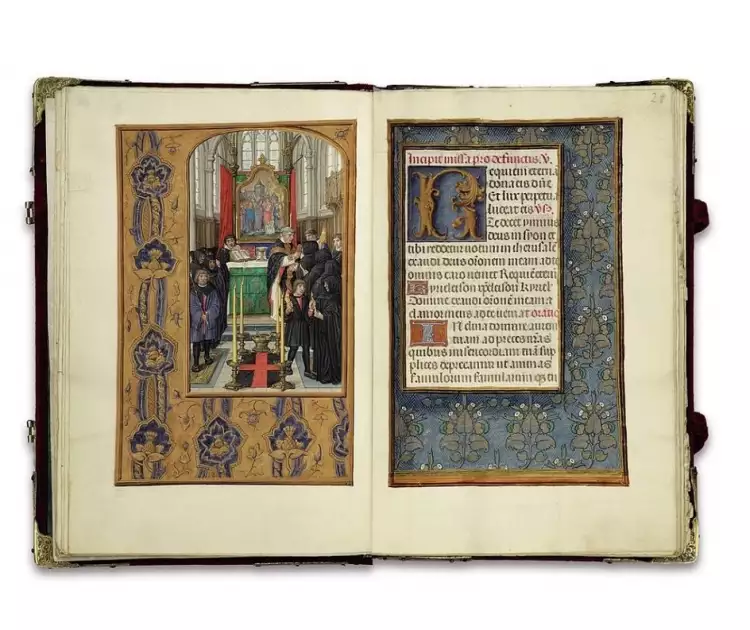 Incipit missa pro defunctis
Requiem eterna
dona eis dne
Et lux perpetua
luceat eis ps
Te decet ymnus
deus in syon et
tibi reddetur votum in iherusale
exaudi deus oronem meam ad te
omnis caro veniet Requiem etern
Kyrieleyson xpeleyson Kyriel
Domine exaudi oronem meam a
clamor meus ad te veniat oratio
Inclina domine aurem
tuam ad preces nras
quibus misericordiam tua sup
plices deprecamur ut animas
famulorum famularum